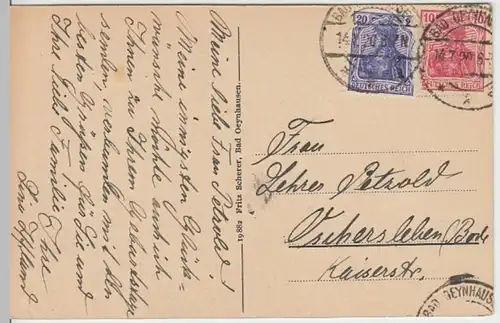 Meine liebe Frau Petzold!
Meine innigsten Glück-
wünsche möchte auch ich
Ihnen zu Ihrem Geburtstage
senden, verbunden mit den
besten Grüßen für Sie und
Ihre liebe Familie. Ihre
19882 Fritz Scherer, Bad Oeynhausen.
20
DEUTSCHES REICH
10
DEUTSCHES REICH
BAD OEYNH
14.7.20
Frau
Lehrer Petzold
Oschersleben (Bode
Kaiserstr.
BAD OEYNHAUS